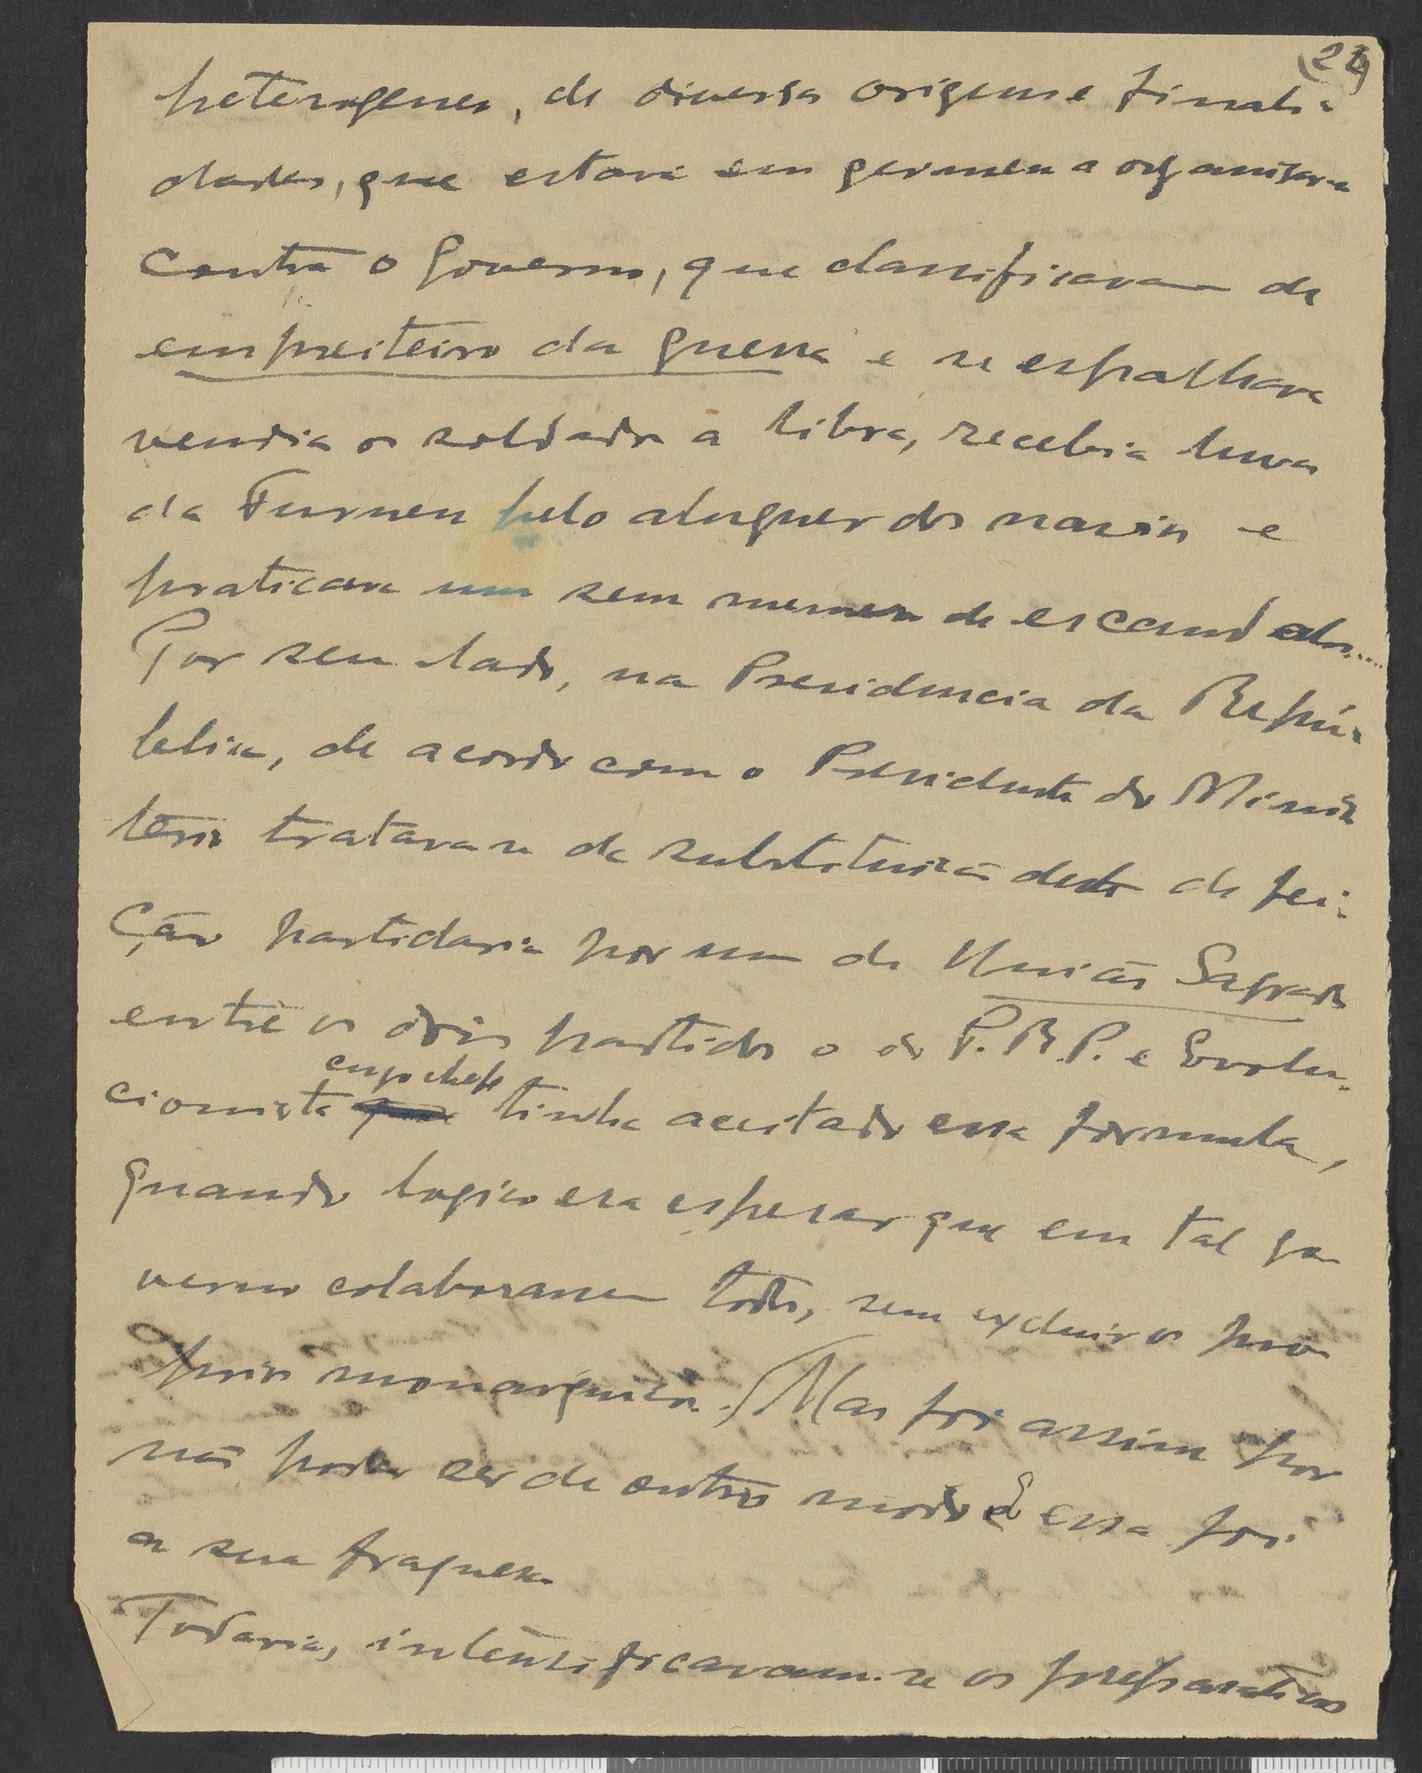 (24)
heterogenea, de diversa origem e finali-
dades, que estava em germen a organisar-se
contra o Governo, que classificavam de
empreiteiro da guerra e se espalhava
vendia os soldados a libra, recebia luvas
da Furness pelo aluguer dos navios e
praticava um sem numero de escandalos....
Por seu lado, na Presidencia da Repú-
blica, de acordo com o Presidente do Minis
terio tratava-se da substituição deste de fei-
ção partidaria por um de União Sagrada
entre os dois partidos o do P.R.P. e Evolu-
cionista cujo chefe tinha aceitado essa formula,
quando logico era esperar que em tal go
verno colaborassem todos, sem excluir os pro
prios monarquicos. Mas foi assim por
não poder ser de outro modo e essa foi
a sua fraqueza
Todavia, intensificavam-se os preparativos